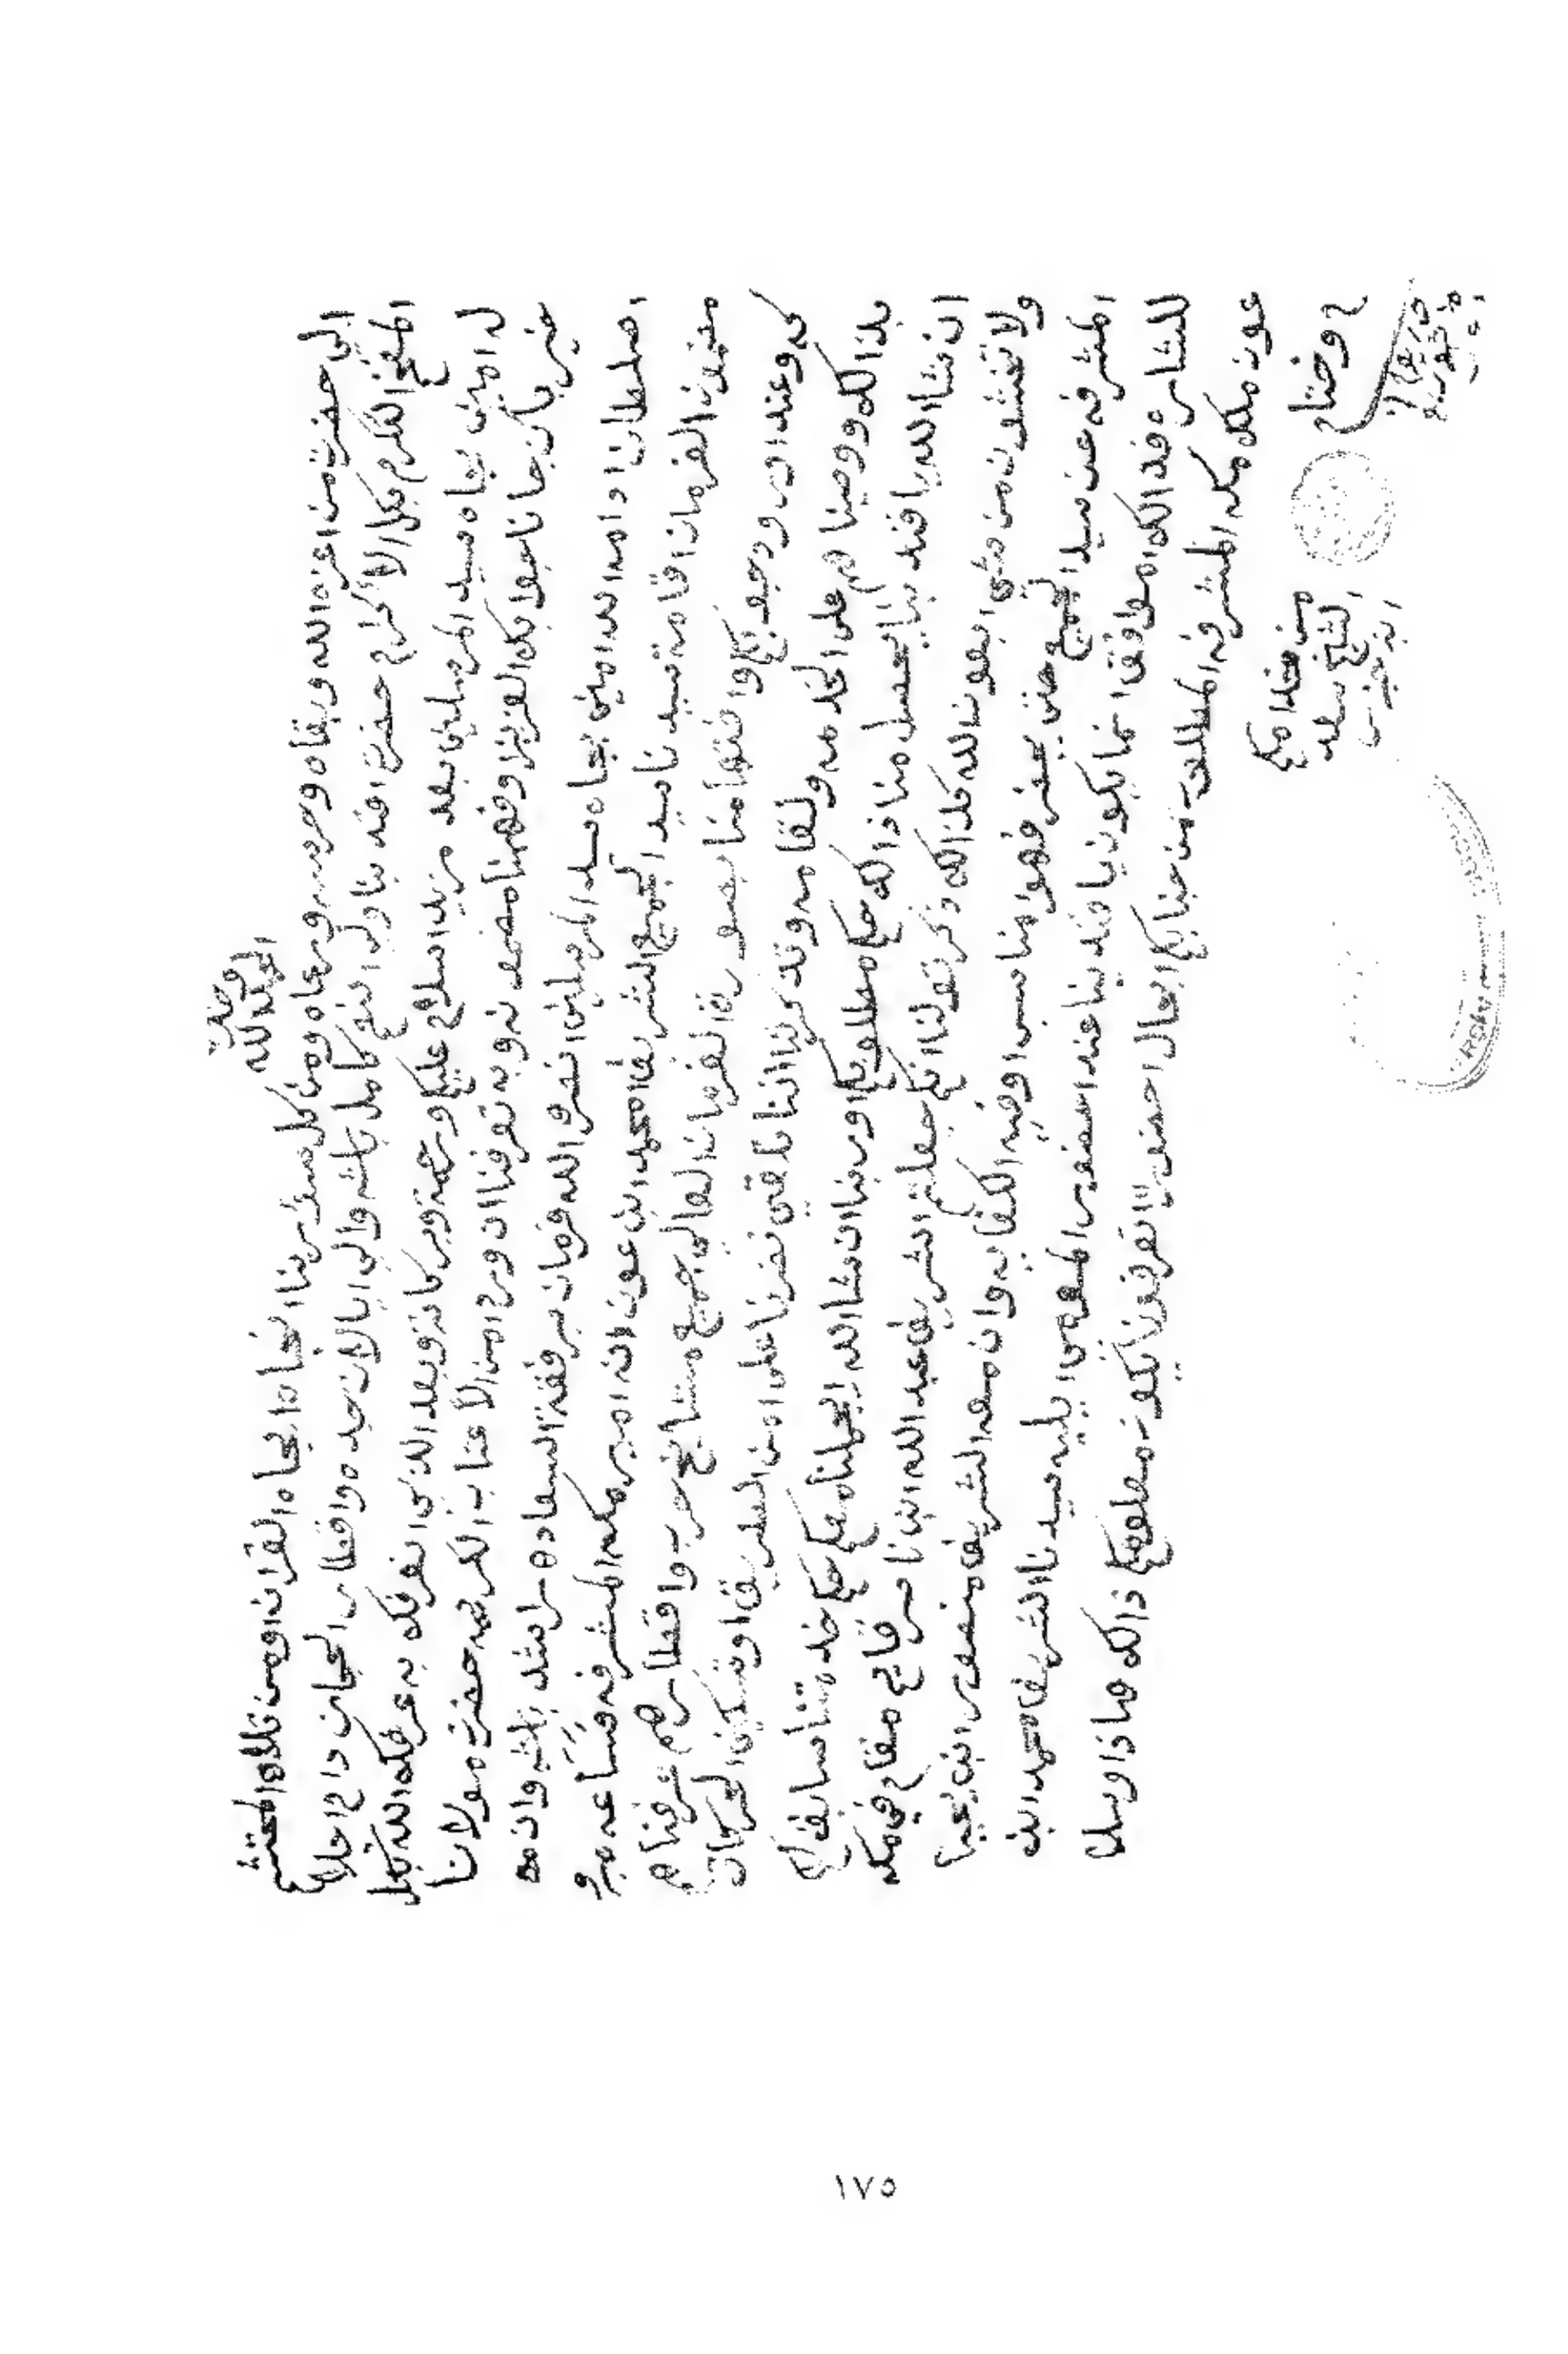 الحمد لله
وحده
الى حضرت من اعزه الله وبقاه وحرسه ورعاه ومن كل سؤ ربنا انجاه ابجاه القران اومن تلاه المحتشم
المفخم المكرم بكل الاكرام حضرت افندينا ولي النعم كامل باشه والي ايالات جده واقطار الحجاز دام اجلا
له امين بجاه سيد المرسلين بعد مزيد اسلام عليكم ورحمة وبركاته وبعد الذي انعرفك به عرفك الله بكل
خير بأن جانا جوابك العزيز وفهمنا مضمونه وبه تعرفنا ان ورد امن الاعتاب الكرمه حضرت مولانا
اصلطانا دامه الله امين بجاه سيد المرسلين انصره الله فرمان برفقة السعاده راشد باشه وانه
مضمون الفرمان اقامة سيدنا سيد الجميع الشريف امحمد ابن عون انه امير مكه المشرفه
كه وعند اورود جوبكم وافتهامنا بصورة الفرمان العالي جميع مشايخ حرب واقطارهم عرفناهم
بذالك ووصيناهم على الخدمه ولقامه وتدركنا اننا باقين نضرنا على امن الطريق اوتسكين الحركات
ان شا الله يا افندينا يحصل منا ذالك حكم مطلوبكم اوربنا ان شا الله ايجملنا معكم حكم خدمتنا سابق لكم
ولا تخشون من شي ابعون الله كذالك ذكر تولنا انكم جعلتم الشريف عبد الله ابن ناصر قايم مقام في مكه
المشرفه عن سيد الجميع حتى يحضر فهوا مناسب اوفيه الكفايه وان معه الشريف منصور ابن يحيا
للشاره فذالك اموافق انما يكون يا افندينا عند احضور المومى ايليه سيدنا الشريف امحمد ابن
عون ملك مكه المشرفه المطلوب من جنابكم ابحال احضوره اتعرفونا يكون معلومكم ذالك هاذا وسلا
م وختام
من خدامكم
الشيخ سعد
ابن جزا
١٧٥